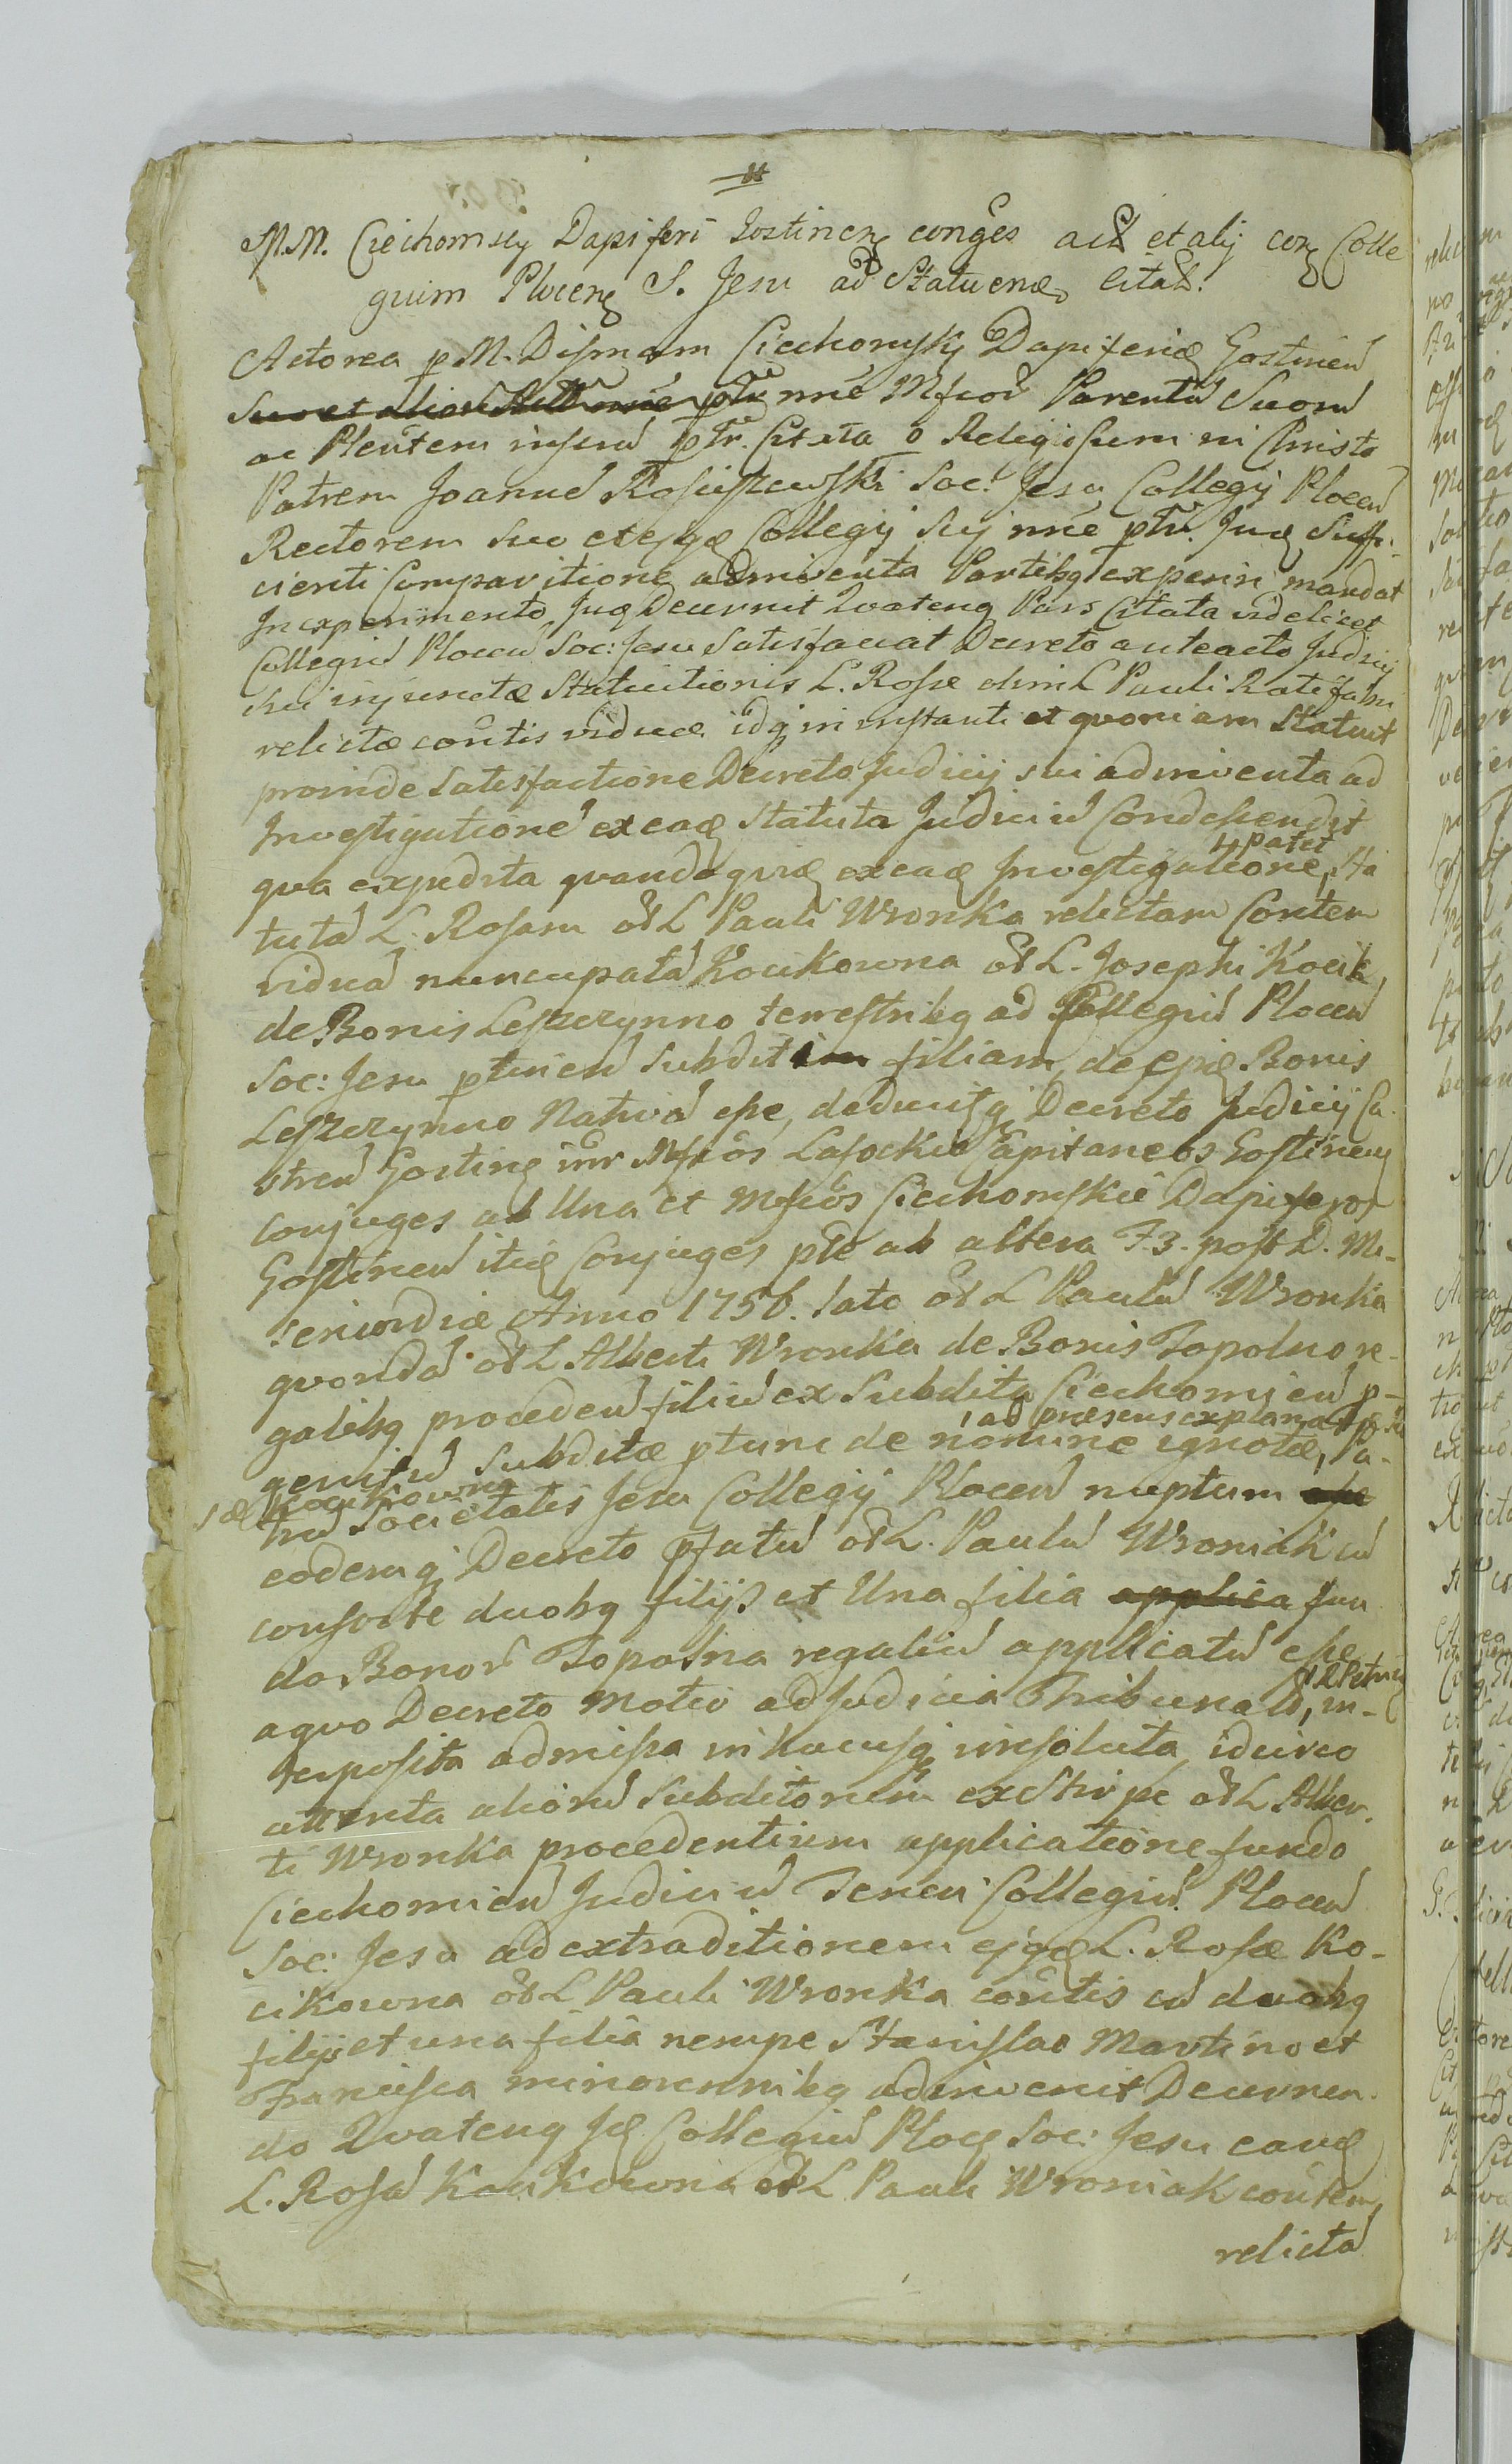 M.M. Ciechomscy Dapiferi Gostinen conges act et alij con Colle
gium Plocen S. Jesu ad Statuenda Citat.
Actorea p M. Dismam Ciechomsky Dapiferidæ Gostinen
Suo et alior nne ptr nne Mfcor Parentu Suoru
ac Plentem inseru ptr. Citata o Religiosum in Christo
Patrem Joannē Rościszewski Soc: Jesu Collegij Plocen
Rectorem Suo et ejqe Collegij Sij nne ptr. Juq Suffi-
cienti Comparitione adinventa Partibq experiri mandat
In experimento Juq Decernit Quatenq Pars Citata videlicet
Collegiu Plocen Soc: Jesu Satisfaciat Decreto anteacto Judicij
sui injunctæ Statuitionis L. Rosæ olim L Pauli Ratafałm
relictæ contis viduæ idq in instanti et quoniam Statuit
proinde Satisfactione Decreto Judicij sui adinventa ad
Investigatione ex eaq Statuta Judiciu Condescendit
qua expedita quandoquiq ex eaq Investigatione, patet Sta
tuta L. Rosam ol L Pauli Wronka relictam Contem
vidua nuncupata Kocikowna ol L. Josephi Kocik
de Bonis Leszczynno terrestribq ad Collegiu Plocen
Soc: Jesu ptinen Subdit filiam, de epiq Bonis
Leszczynno Nativa esse, deducitq Decreto Judicij Ca-
stren Gostinq inr Mfcos Lasockie Capitaneos Gostinen
conjuges ab Una et Mfcos Ciechomskie Dapiferos
Gostinen itiq Conjuges pte ab altera F. 3. post D. Mi-
sericordiæ Anno 1756. lato ol L Paulu Wronka
quonda ol L Alberti Wronka de Bonis Topolno re-
galibq proceden filiu ex Subdita Ciechomicen p-
genitu Subditæ ptunc de nomine ignotæ, ad præsens explanatæ Pa-
sæ Kocikowna tru Societatis Jesu Collegij Plocen nuptum esse
eodemq Decreto pfatu ol L. Paulu Wroniak cu
consorte duobq filijs et Una filia applica fun
do Bonor Topolna regaliu applicatu esse
a quo Decreto Motio ad Judicia Tribunalis, in-
terposita admissa in hucusq insoluta, idcirco
attenta alioru Subditorum ex Stirpe ol L Alber-
ti Wronka procedentium applicatione fundo
Ciechomicen Judiciu Teneri Collegiu Plocen
Soc: Jesu ad extraditionem ejqe L. Rosæ Ko-
cikowna ol L Pauli Wronka contis cu duobq
filijs et una filia nempe Stanislao Martino et
Francisca minorennibq adinvenit Decernen-
do Quatenq Jq Collegiu Plocq Soc: Jesu eamq
L. Rosa Kocikowna ol L Pauli Wroniak contem,
relicta